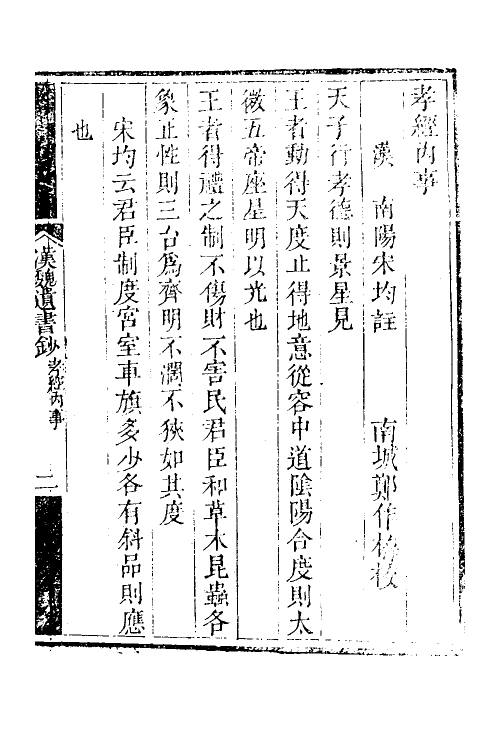 孝經內事
漢 南陽宋均註 南城鄭作梅校
天子行孝德則景星見
王者動得天度止得地意從容中道陰陽合度則太
微五帝座星明以光也
王者得禮之制不傷財不害民君臣和草木昆蟲各
象正性則三台爲齊明不濶不狹如其度
宋均云君臣制度宮室車旗多少各有斜品則應
也
漢魏遺書鈔 孝經內事 二